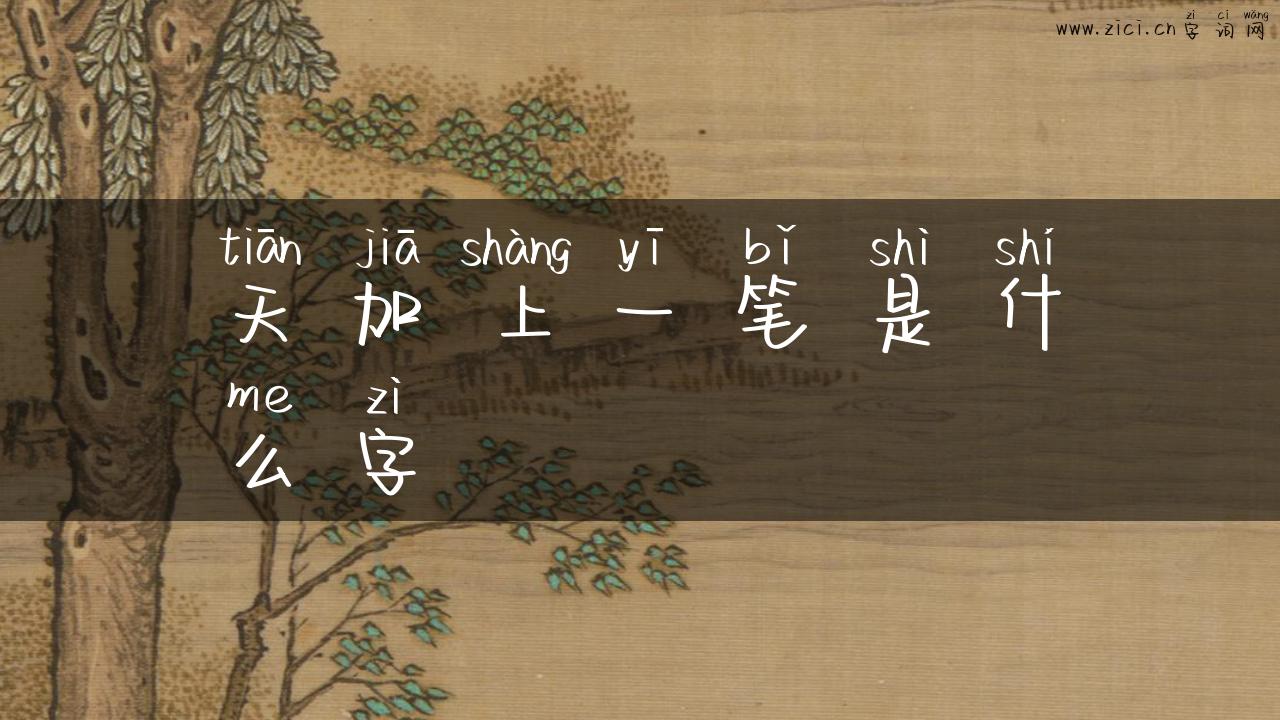 zì cí wǎng
www.zici.cn 字词网
tiān jiā shàng yī bǐ shì shí
天加上一笔是什
me zì
么字